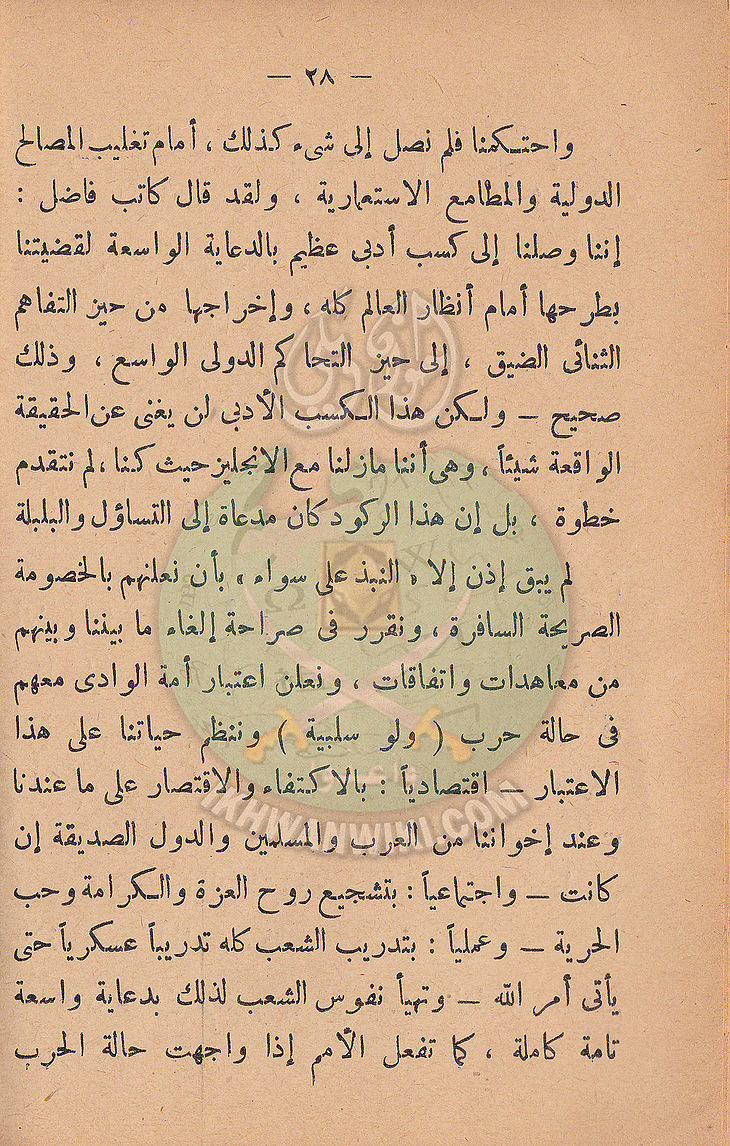 — ٢٨ —
واحتكمنا فلم نصل إلى شىء كذلك ، أمام تغليب المصالح
الدولية والمطامع الاستعمارية ، ولقد قال كاتب فاضل :
إننا وصلنا إلى كسب أدبى عظيم بالدعاية الواسعة لقضيتنا
بطرحها أمام أنظار العالم كله ، وإخراجها من حيز التفاهم
الثنائى الضيق ، إلى حيز التحاكم الدولى الواسع ، وذلك
صحيح — ولكن هذا الكسب الأدبى لن يغنى عن الحقيقة
الواقعة شيئاً ، وهى أننا مازلنا مع الانجليز حيث كنا ، لم نتقدم
خطوة ، بل إن هذا الركود كان مدعاة إلى التساؤل والبلبلة
لم يبق إذن إلا « النبذ على سواء » بأن نعلنهم بالخصومة
الصريحة السافرة ، ونقرر فى صراحة إلغاء ما بيننا وبينهم
من معاهدات واتفاقات ، ونعلن اعتبار أمة الوادى معهم
فى حالة حرب ( ولو سلبية ) وننظم حياتنا على هذا
الاعتبار — اقتصادياً : بالاكتفاء والاقتصار على ما عندنا
وعند إخواننا من العرب والمسلمين والدول الصديقة إن
كانت — واجتماعياً : بتشجيع روح العزة والكرامة وحب
الحرية — وعملياً : بتدريب الشعب كله تدريباً عسكرياً حتى
يأتى أمر الله — وتهيأ نفوس الشعب لذلك بدعاية واسعة
تامة كاملة ، كما تفعل الأمم إذا واجهت حالة الحرب
IKHWANWIKI.COM